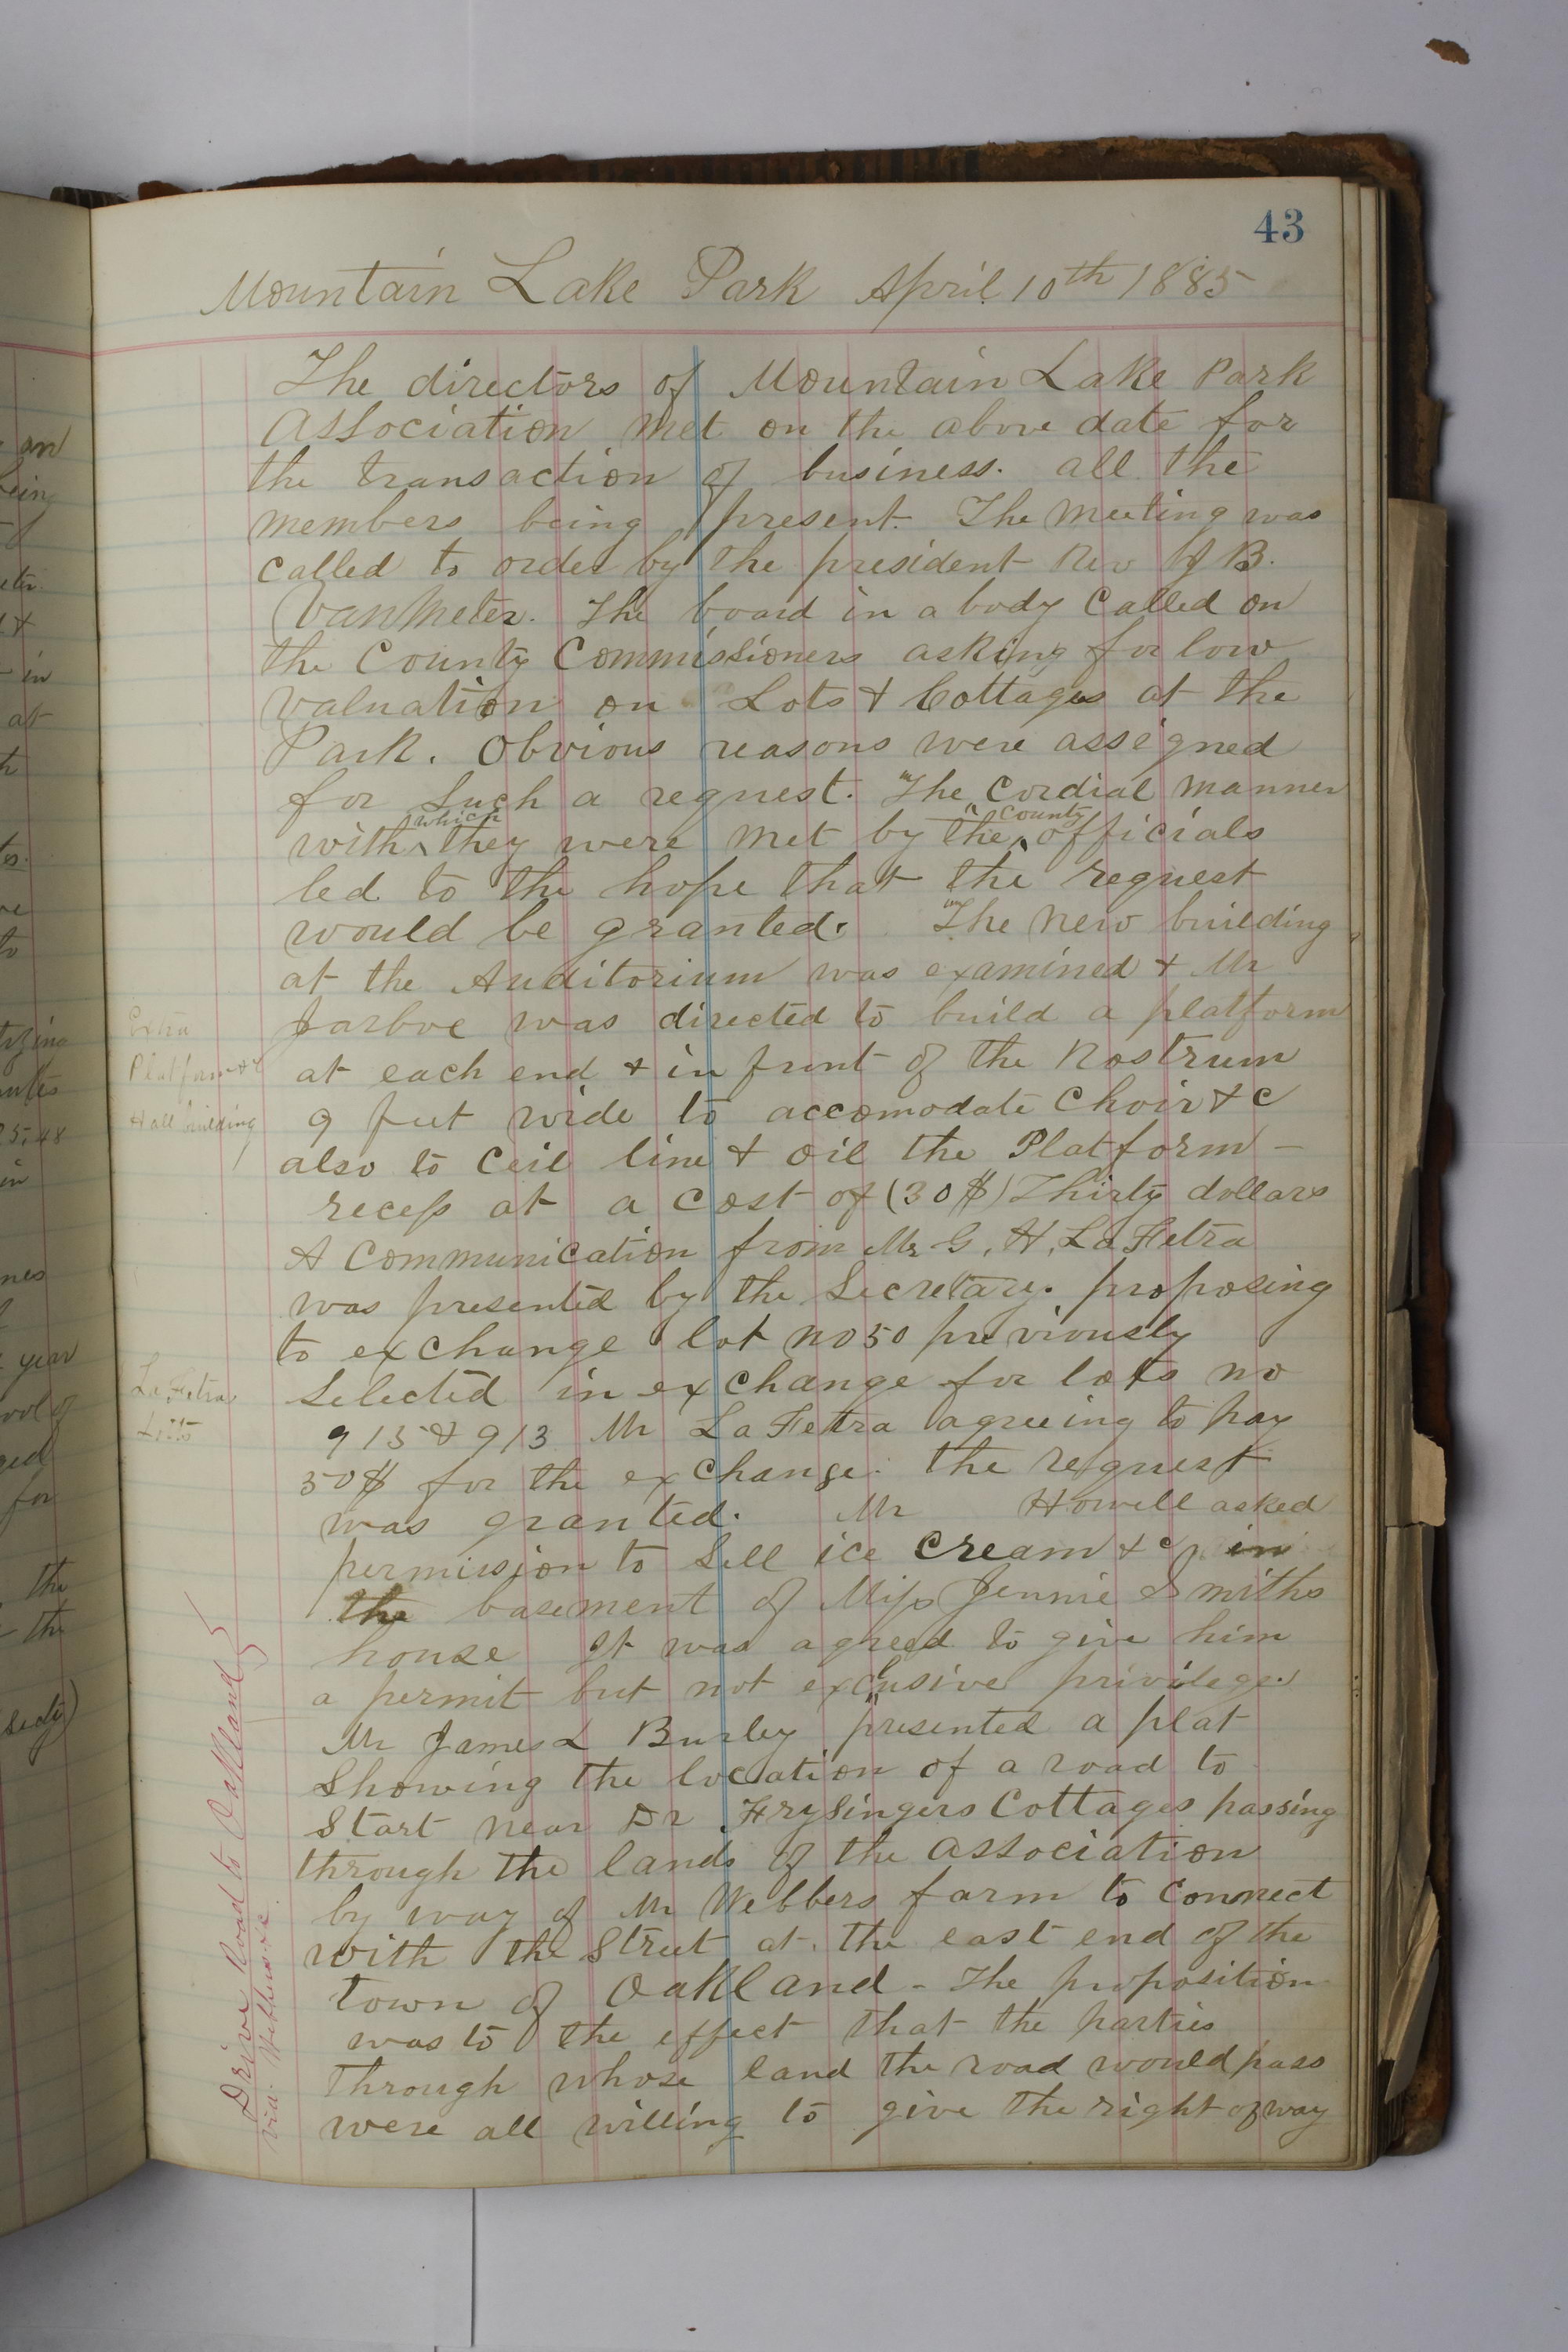 43
Mountain Lake Park April 10th 1885
The directors of Mountain Lake Park
Association met on the above date for
the transaction of business. all the
members being present. The meeting was
called to order by the president Rev
VanMeter. The board in a body called on
the County Commissioners asking for low
valuation on Lots & Cottages at the
Park. Obvious reasons were assigned
for such a request. The cordial manner
with which they were met by the County officials
led to the hope that the request
would be granted. The new building
at the Auditorium was examined & Mr
Jarboe was directed to build a platform
at each end & in front of the Rostrum
9 feet wide to accomodate Choir &c
also to Ceil line & oil the Platform -
recess at a cost of (30$) Thirty dollars
A Communication from Mr G. H. La Fetra
was presented by the Secretary. proposing
to exchange lot no 50 previously
Selected in exchange for lots no
915 & 913 Mr La Fetra agreeing to pay
50$ for the exchange. the request
was granted. Mr Howell asked
permission to Sell ice cream &c in
the basement of Miss Jennie Smiths
house It was agreed to give him
a permit but not exclusive privilege.
Mr James L Burley presented a plat
Showing the location of a road to
Start near Dr Frysingers Cottages passing
through the lands of the association
by way of Mr Webbers farm to Connect
with the Street at the east end of the
town of Oakland - The proposition
was to the effect that the parties
through whose land the road would pass
were all willing to give the right of way
Extra
Platform &
Hall building
La Fetra
Lots
Drive Road to Oakland
via.